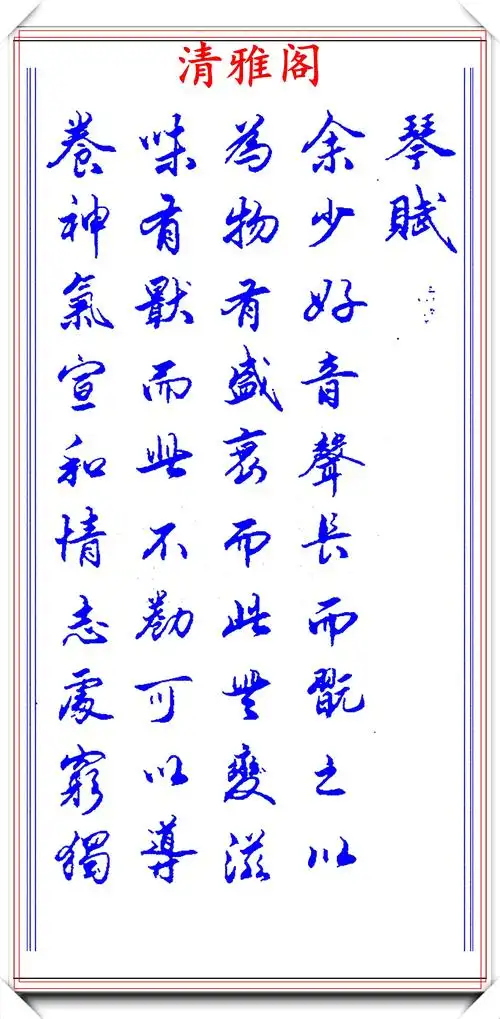 清雅阁
琴賦
余少好音聲長而翫之以
為物有盛衰而此無變滋
味有厭而此不勌可以導
養神氣宣和情志處窮獨